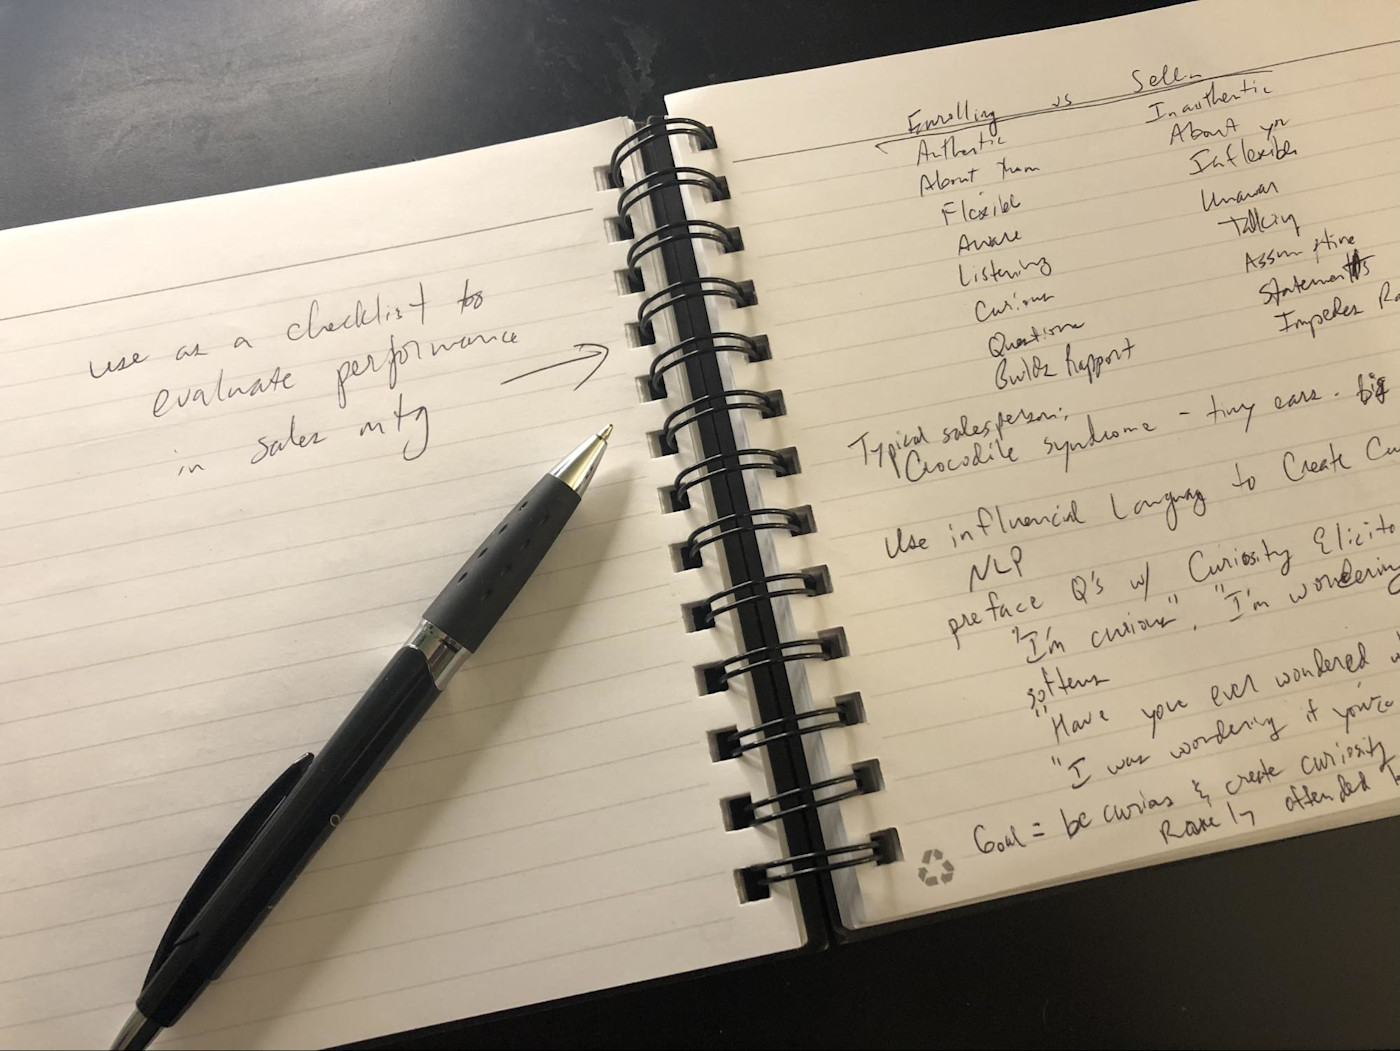 use as a checklist to
evaluate performance
in sales mtg
Enrolling vs Sellin
Authentic Inauthentic
About them About you
Flexible Inflexible
Aware Unaware
Listening Talking
Curious Assumptive
Questions Statements
Builds Rapport Impedes Ra
Typical salesperson:
Crocodile syndrome - tiny ears. big
Use influencial Language to Create Cu
NLP
preface Q's w/ Curiosity Elicito
"I'm curious", "I'm wondering
softens
"Have you ever wondered w
"I was wondering if you've
Goal = be curious & create curiosity
Rarely offended